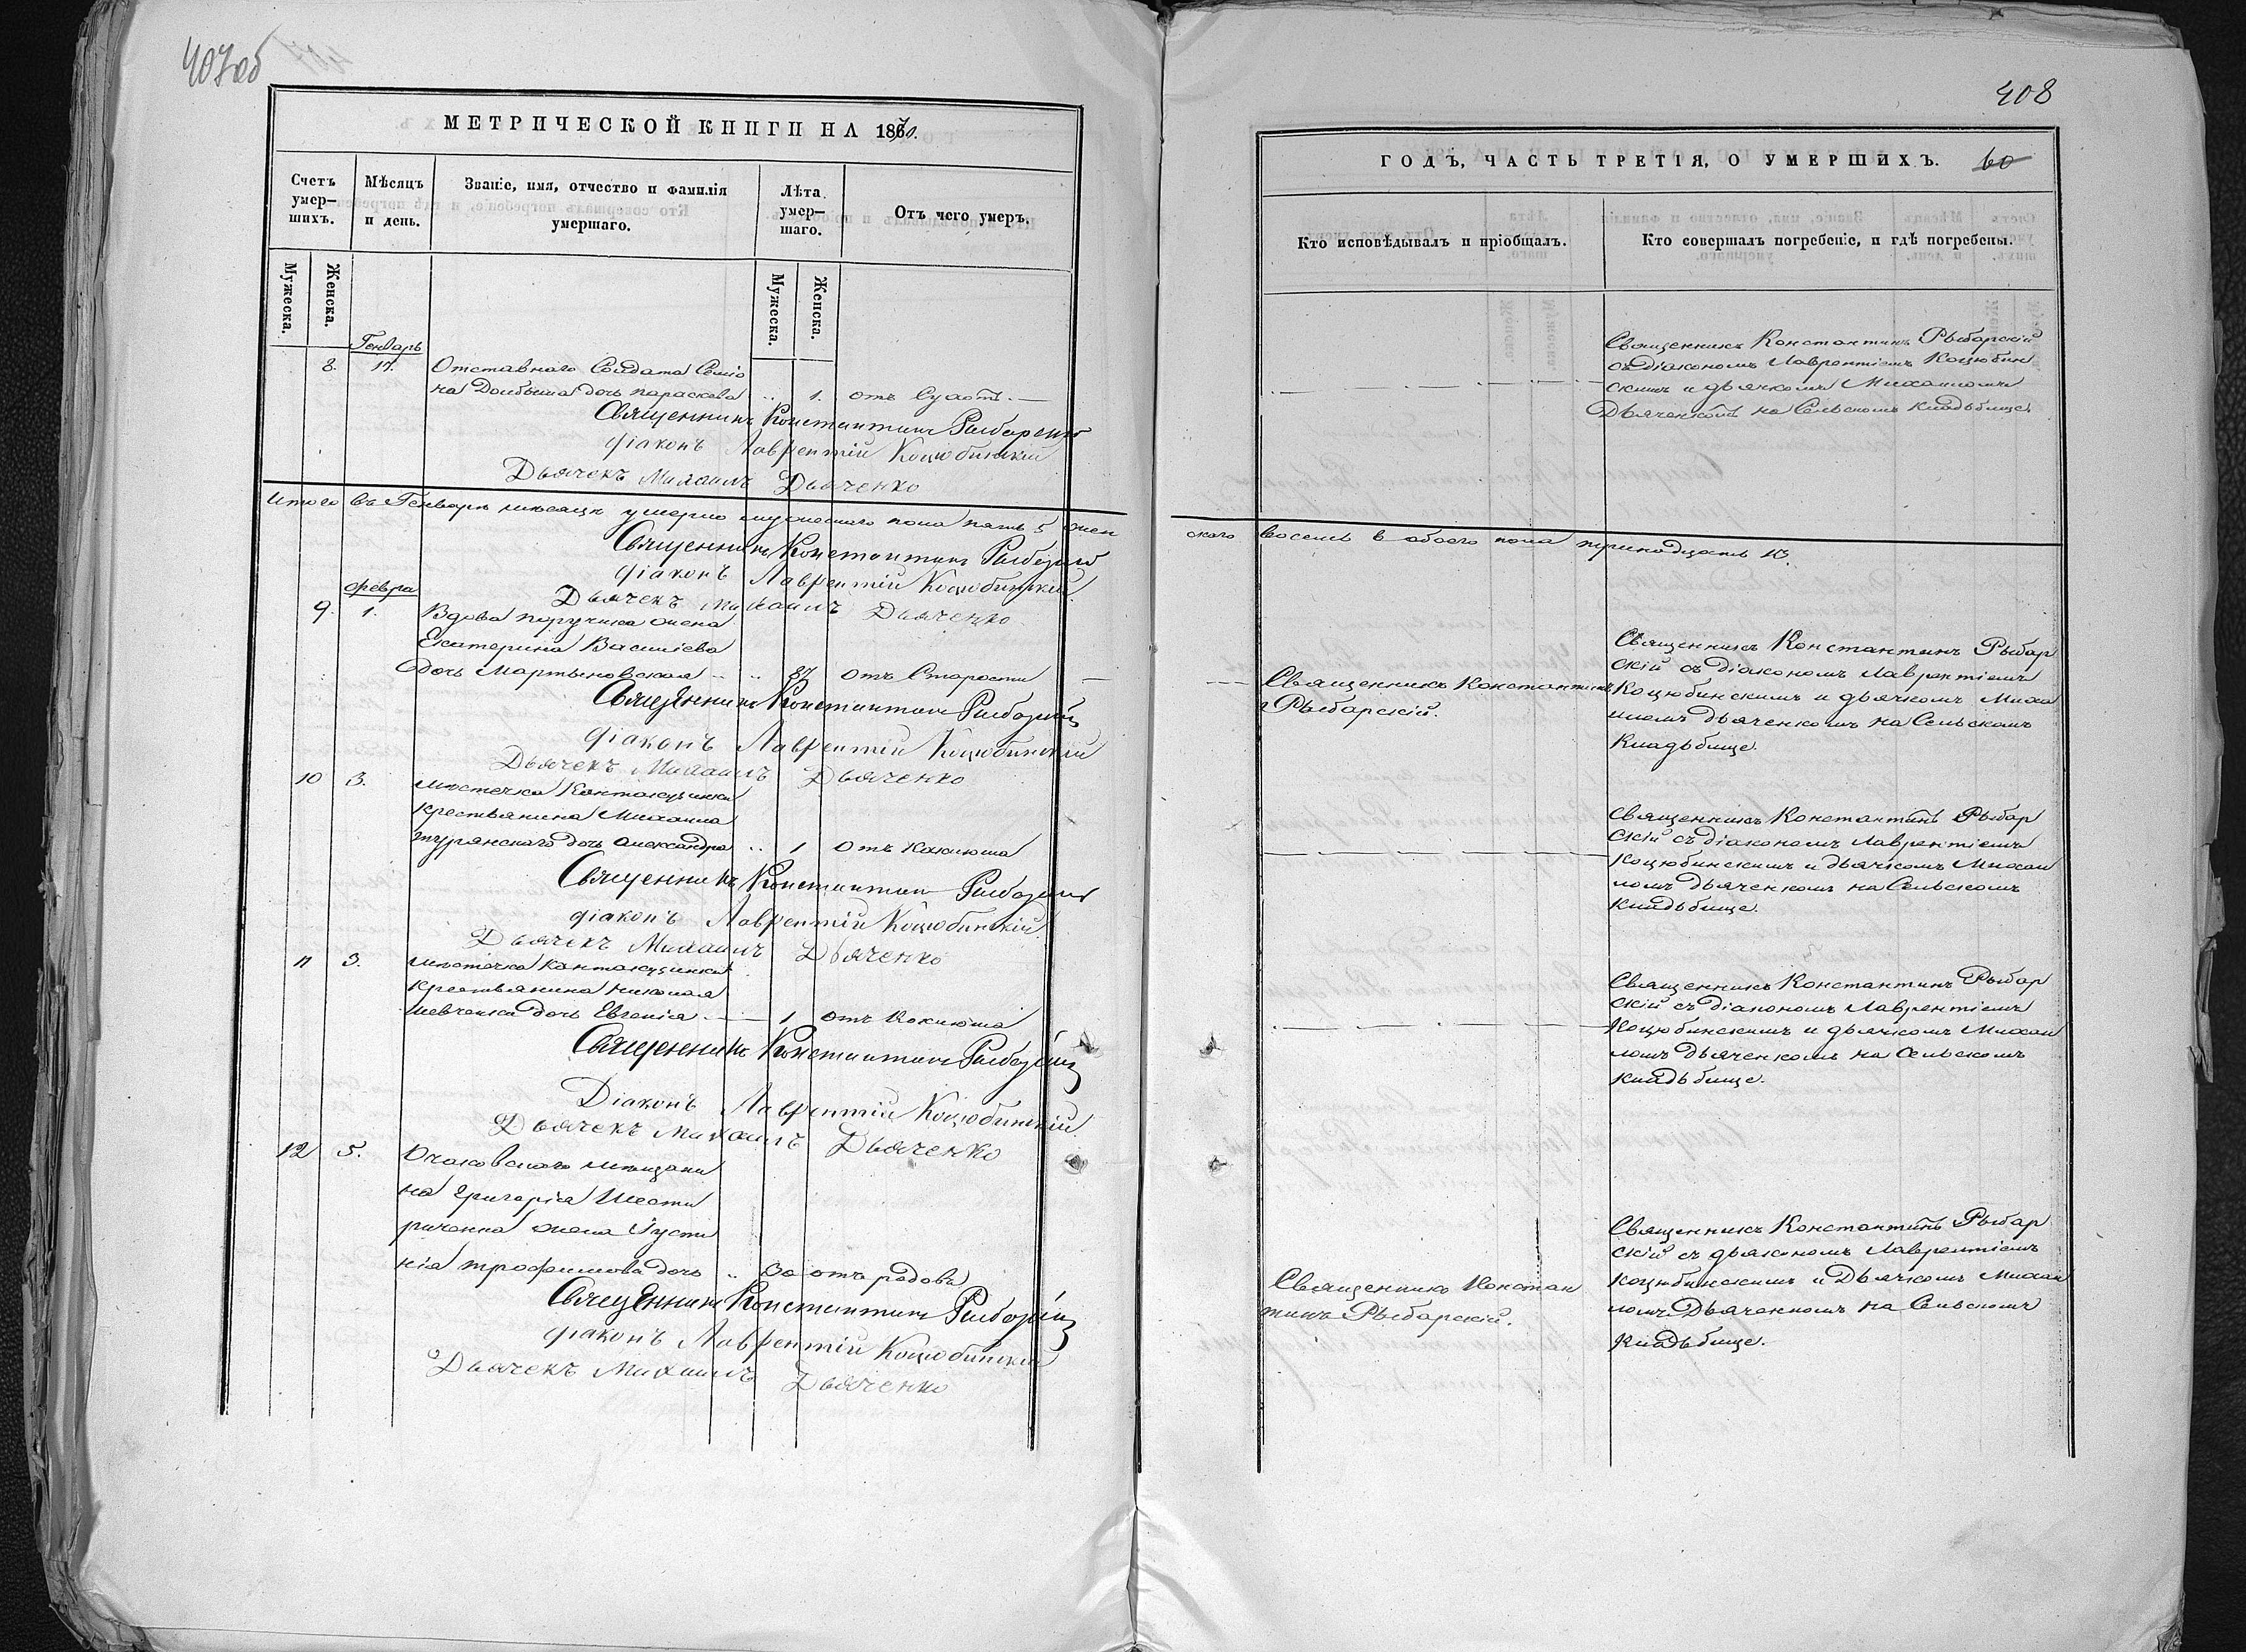 407об
МЕТРИЧЕСКОЙ КНИГИ НА 1870.
Счетъ умер-шихъ.
Мѣсяцъ и день.
Званіе, имя, отчество и фамилія умершаго.
Лѣта умер-шаго.
Отъ чего умеръ.
Мужеска.
Женска.
Мужеска.
Женска.
Генварь
8. 17. Отставнаго Солдата Семіо
на Долбыша дочь Параскева .. 1. отъ
Священникъ Константинъ Рыбарскій
Діаконъ Лаврентій Коцюбинскій
Дьячекъ Михаилъ Дьяченко
Итого въ Генварѣ мѣсяцѣ умерло мужескаго пола пять 5 жен
Священникъ Константинъ Рыбарскій
Діаконъ Лаврентій Коцюбинскій
Февра
Дьячекъ Михаилъ Дьяченко
9. 1. Вдова поручика жена
Екатерина Василіева
дочь Мартыновская .. .. 87 отъ Старости
Священникъ Константинъ Рыбарскій
Діаконъ Лаврентій Коцюбинскій
Дьячекъ Михаилъ Дьяченко
10 3. мѣстечка Кантакузинки
крестьянина Михаила
Турянскаго дочь Александра .. 1 отъ Коклюша
Священникъ Константинъ Рыбарскій
Діаконъ Лаврентій Коцюбинскій
Дьячекъ Михаилъ Дьяченко
11 3. мѣстечка Кантакузинки
крестьянина Николая
Шевченка дочь Евгенія 1 отъ Коклюша
Священникъ Константинъ Рыбарскій
Діаконъ Лаврентій Коцюбинскій
Дьячекъ Михаилъ Дьяченко
12 5. Очаковскаго мѣщани
на Григорія Шести
риченка жена Іусти
нія Трофимова дочь .. 30 отъ родовъ
Священникъ Константинъ Рыбарскій
Діаконъ Лаврентій Коцюбинскій
Дьячекъ Михаилъ Дьяченко
408
ГОДЪ, ЧАСТЬ ТРЕТІЯ, О УМЕРШИХЪ. 60
Кто исповѣдывалъ и пріобщалъ.
Кто совершалъ погребеніе, и гдѣ погребены.
Священникъ Константинъ Рыбарскій
съ діакономъ Лаврентіемъ Коцюбин
скимъ и дьячкомъ Михаиломъ
Дьяченкомъ на Сельскомъ кладьбище.
скаго восемь 8 обоего пола тринадцать 13.
Священникъ Константинъ Рыбар
скій съ діакономъ Лаврентіемъ
Священникъ Константинъ Коцюбинскимъ и дьячкомъ Миха
Рыбарскій. иломъ Дьяченкомъ на Сельскомъ
Кладьбище.
Священникъ Константинъ Рыбар
скій съ діакономъ Лаврентіемъ
Коцюбинскимъ и дьячкомъ Михаи
ломъ Дьяченкомъ на Сельскомъ
кладьбище.
Священникъ Константинъ Рыбар
скій съ діакономъ Лаврентіемъ
Коцюбинскимъ и дьячкомъ Михаи
ломъ Дьяченкомъ на Сельскомъ
кладьбище.
Священникъ Константинъ Рыбар
скій съ дьякономъ Лаврентіемъ
Священникъ Констан Коцюбинскимъ и Дьячкомъ Михаи
тинъ Рыбарскій. ломъ Дьяченкомъ на Сельскомъ
Кладьбище.